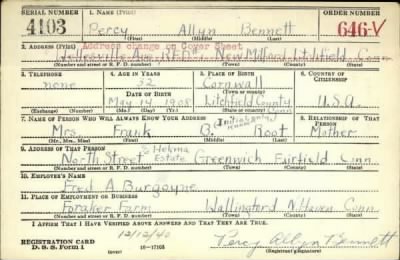 SERIAL NUMBER 1. NAME (Print) ORDER NUMBER
4103 Percy Allyn Bennett 646-V
(First) (Middle) (Last)
2. ADDRESS (Print) Address change on Cover Sheet
Ave. R.F.D. New Milford Litchfield Conn
(Number and street or R. F. D. number) (Town) (County) (State)
3. TELEPHONE 4. AGE IN YEARS 5. PLACE OF BIRTH 6. COUNTRY OF CITIZENSHIP
none 32 Cornwall
DATE OF BIRTH (Town or county)
May 14 1908 Litchfield County Conn U.S.A.
(Exchange) (Number) (Mo.) (Day) (Yr.) (State or country)
7. NAME OF PERSON WHO WILL ALWAYS KNOW YOUR ADDRESS 8. RELATIONSHIP OF THAT PERSON
Mrs. Frank B. Root Mother
(Mr., Mrs., Miss) (First) (Middle) (Last)
9. ADDRESS OF THAT PERSON
North Street Estate Greenwich Fairfield Conn
(Number and street or R. F. D. number) (Town) (County) (State)
10. EMPLOYER'S NAME
Fred A Burgoyne
11. PLACE OF EMPLOYMENT OR BUSINESS
Foraker Farm Wallingford N. Haven Conn
(Number and street or R. F. D. number) (Town) (County) (State)
I AFFIRM THAT I HAVE VERIFIED ABOVE ANSWERS AND THAT THEY ARE TRUE.
12/12/40
REGISTRATION CARD
D. S. S. Form 1 16—17105 (over) Percy Allyn Bennett
(Registrant's signature)